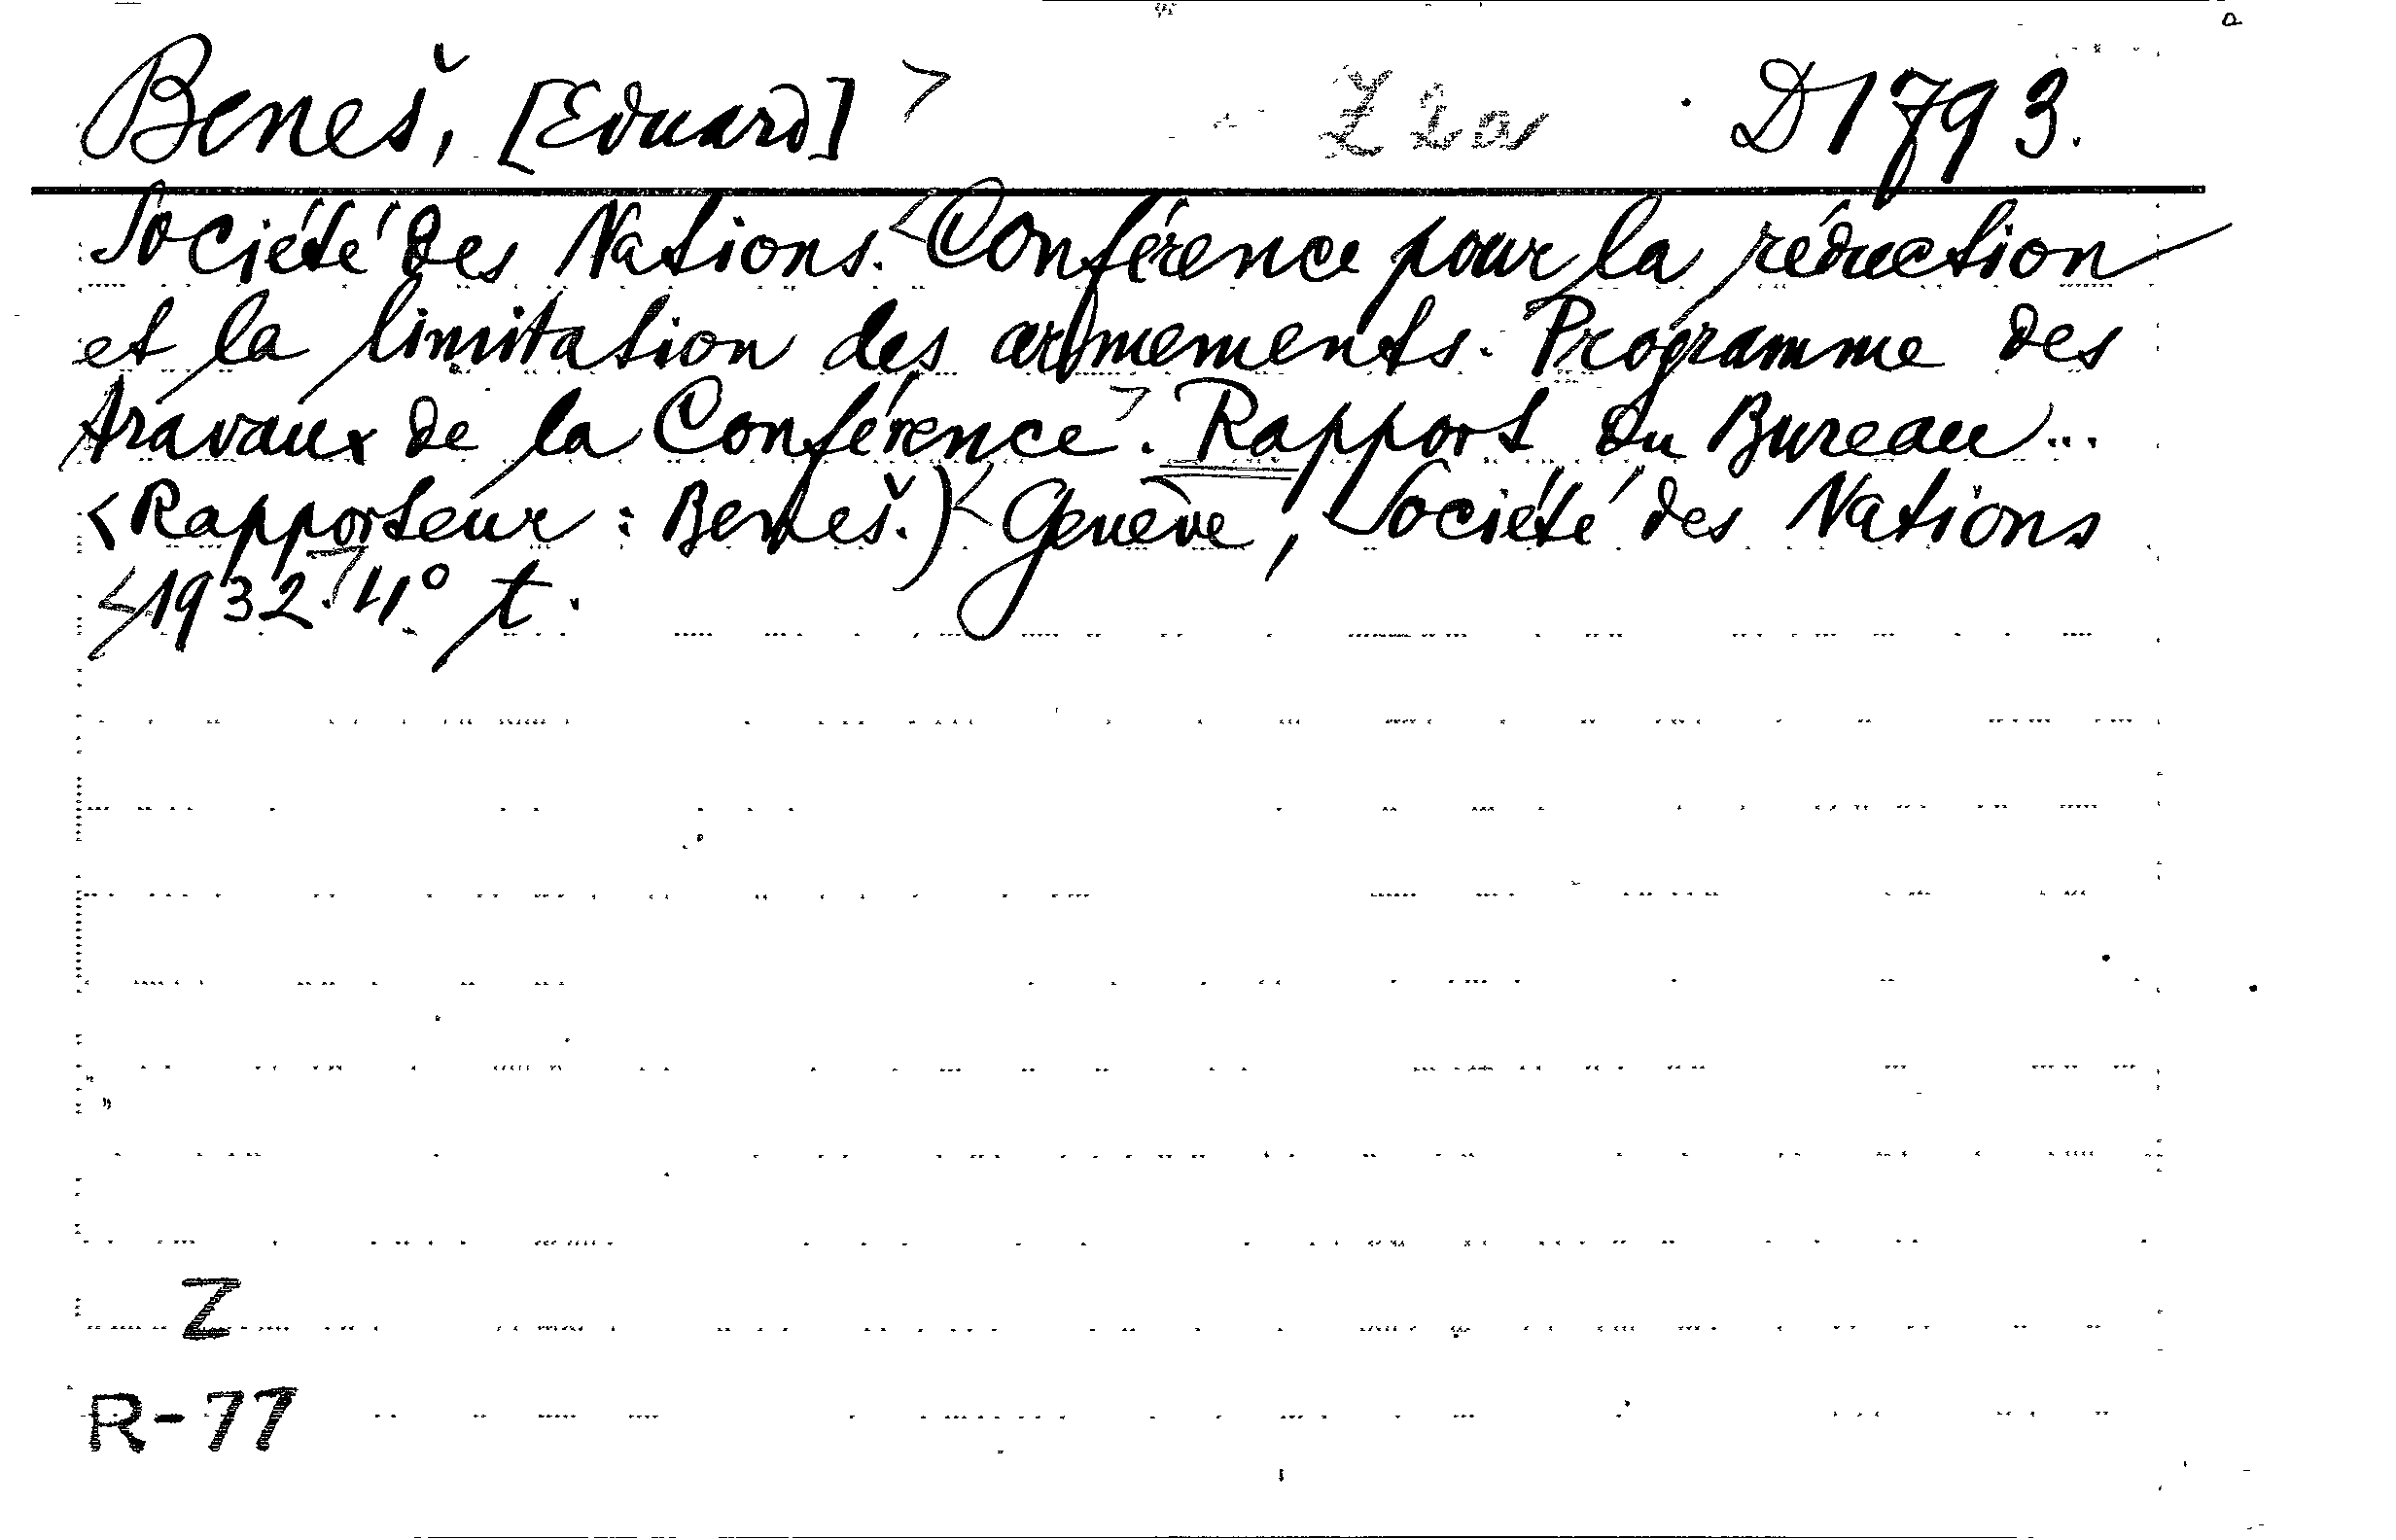 Beneš, [Eduard] Z 2a D 1793.
Société des Nations. <Conférence pour la réduction
et la limitation des armements. Programme des
travaux de la Conférence>. Rapport du Bureau...
<Rapporteur: Beneš.) <Genève, Société des Nations
<1932.> 4° t.
Z
R-77